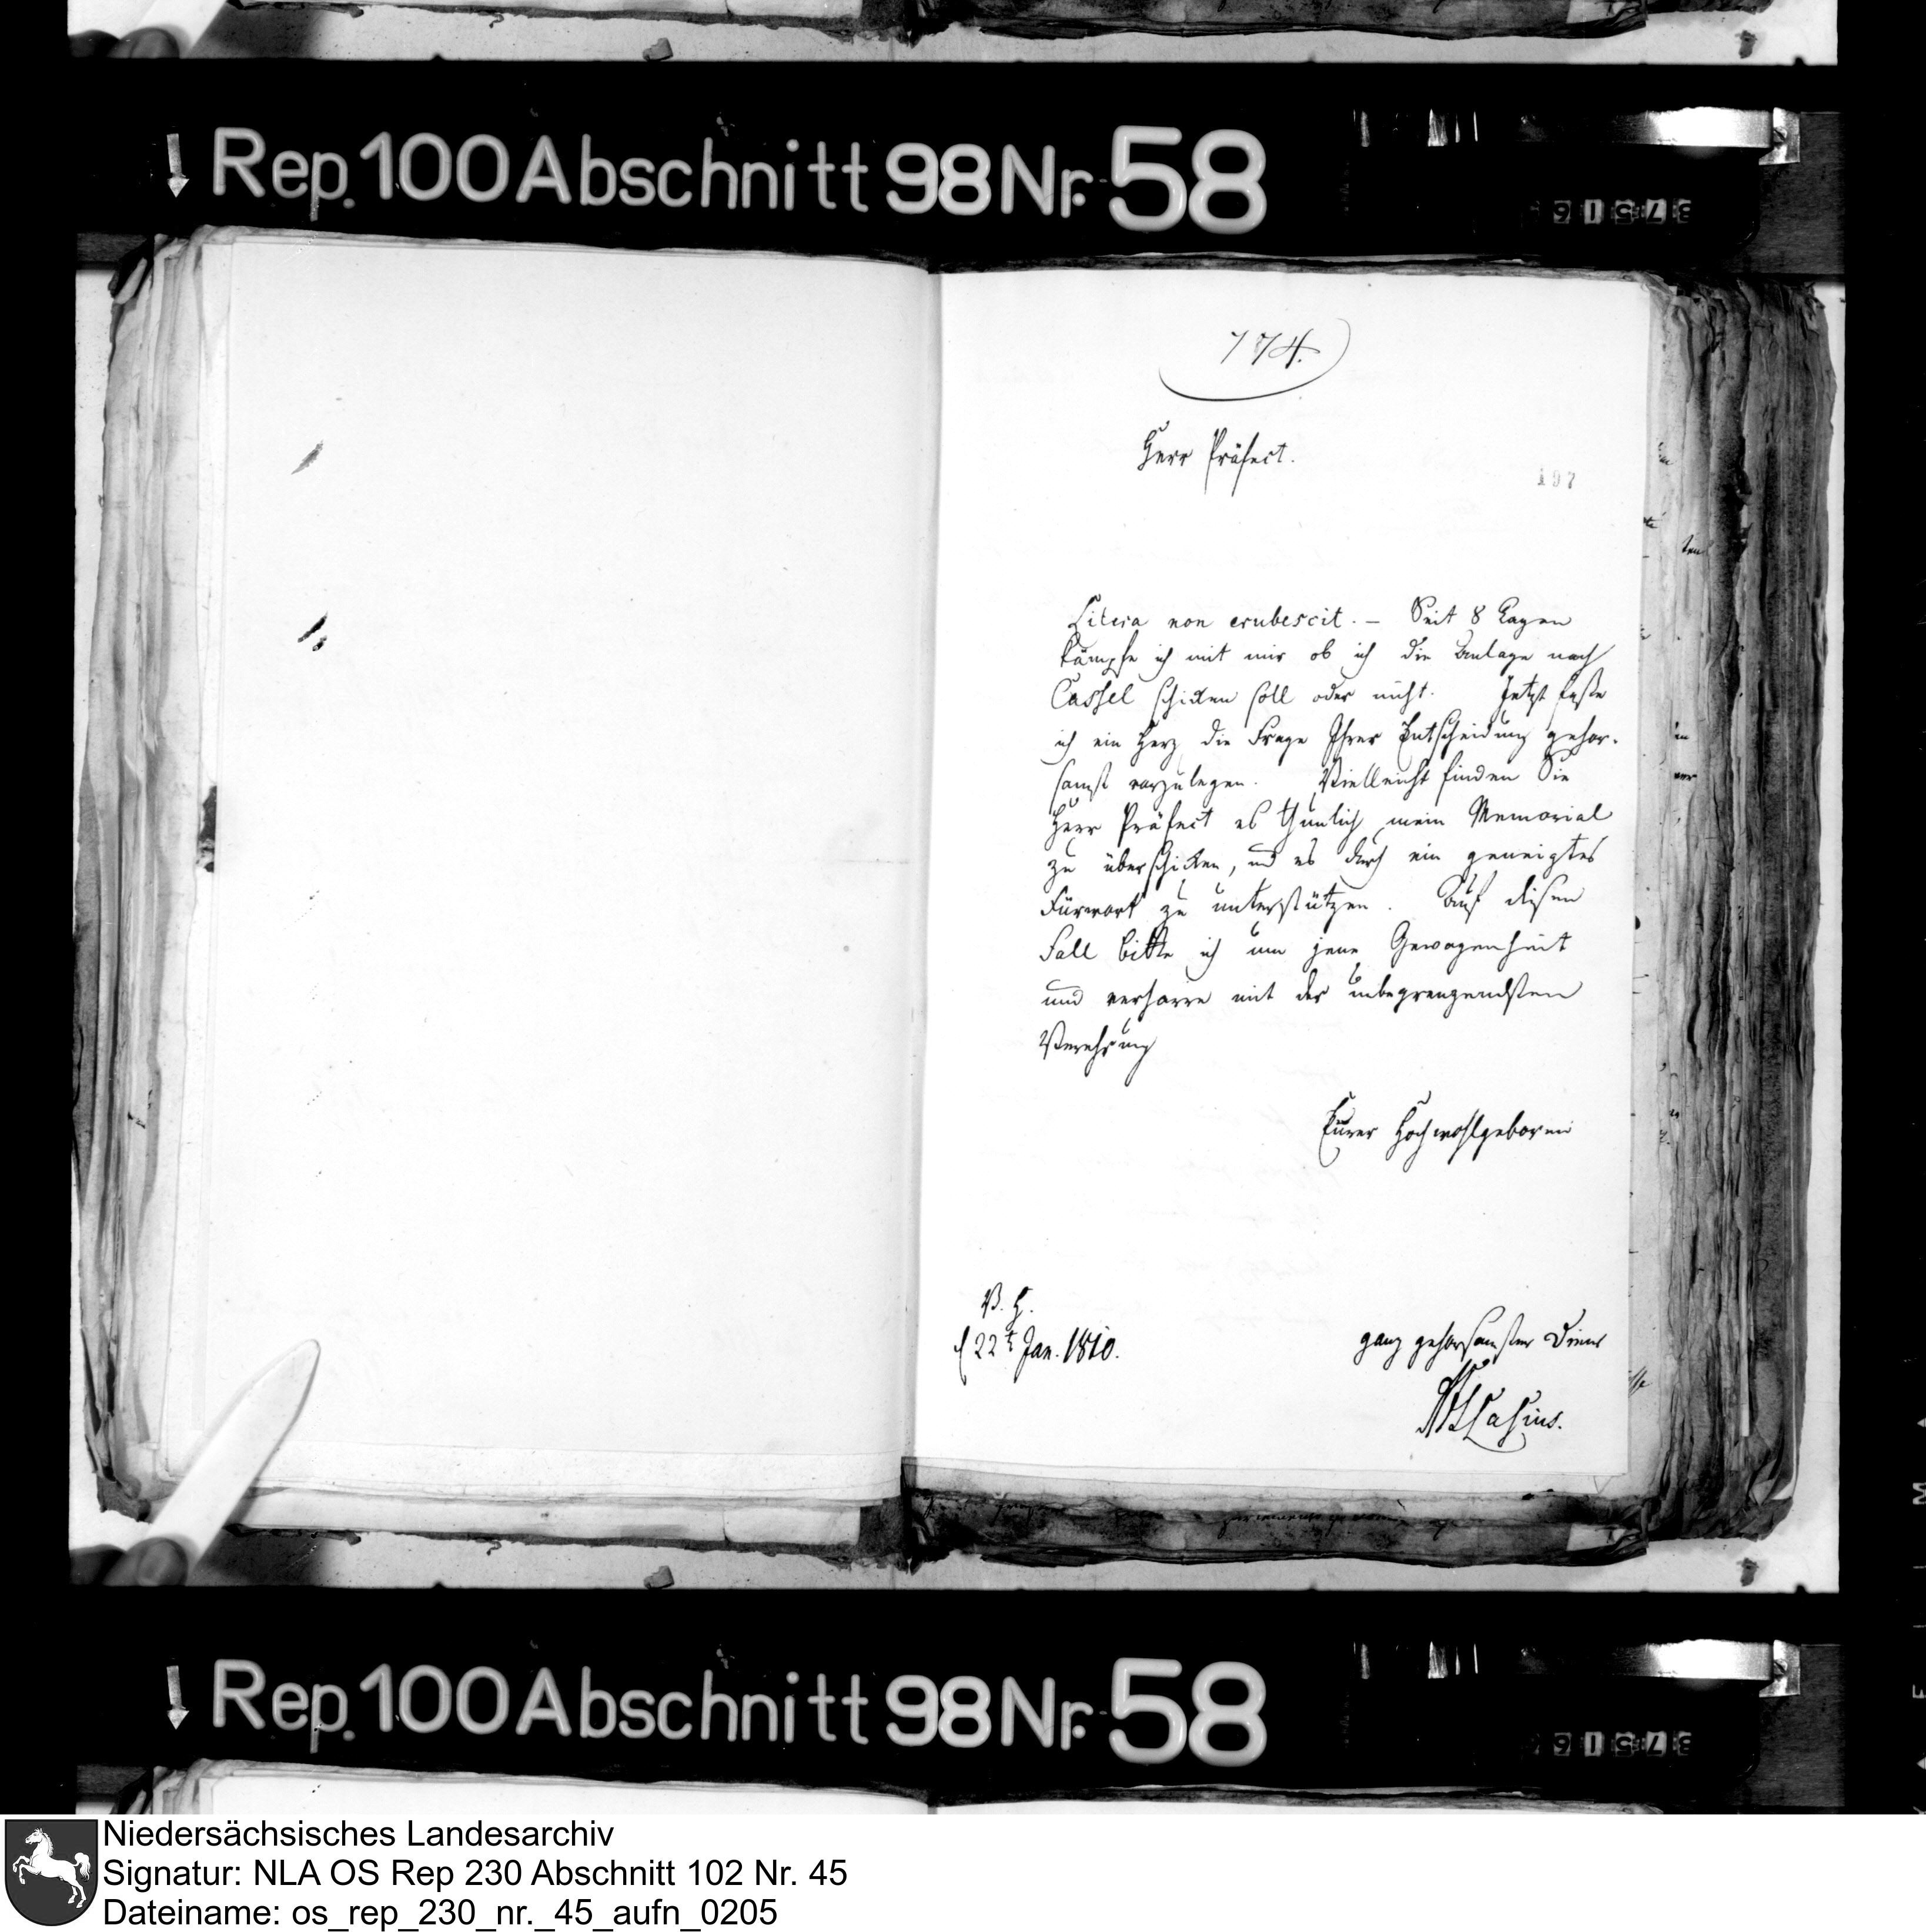 Rep. 100 Abschnitt 98 Nr. 58
774.
Herr Präfect.
197
Litera non erubescit. — Seit 8 Tagen
kämpfe ich mit mir ob ich die Anlage nach
Cassel schicken soll oder nicht. Jetzt faße
ich ein Herz die Frage Ihrer Entscheidung gehor-
samst vorzulegen. Vielleicht finden Sie
Herr Präfect es thunlich mein Memorial
zu überschicken, und es durch ein geneigtes
Fürwort zu unterstützen. Auf diesen
Fall bitte ich um jene Gewogenheit
und verharre mit der unbegrenzendsten
Verehrung
Eurer Hochwohlgeboren
V. H.
d 22t Jan. 1810.
ganz gehorsamster Diener
Lasius.
Rep. 100 Abschnitt 98 Nr. 58
Niedersächsisches Landesarchiv
Signatur: NLA OS Rep 230 Abschnitt 102 Nr. 45
Dateiname: os_rep_230_nr._45_aufn_0205